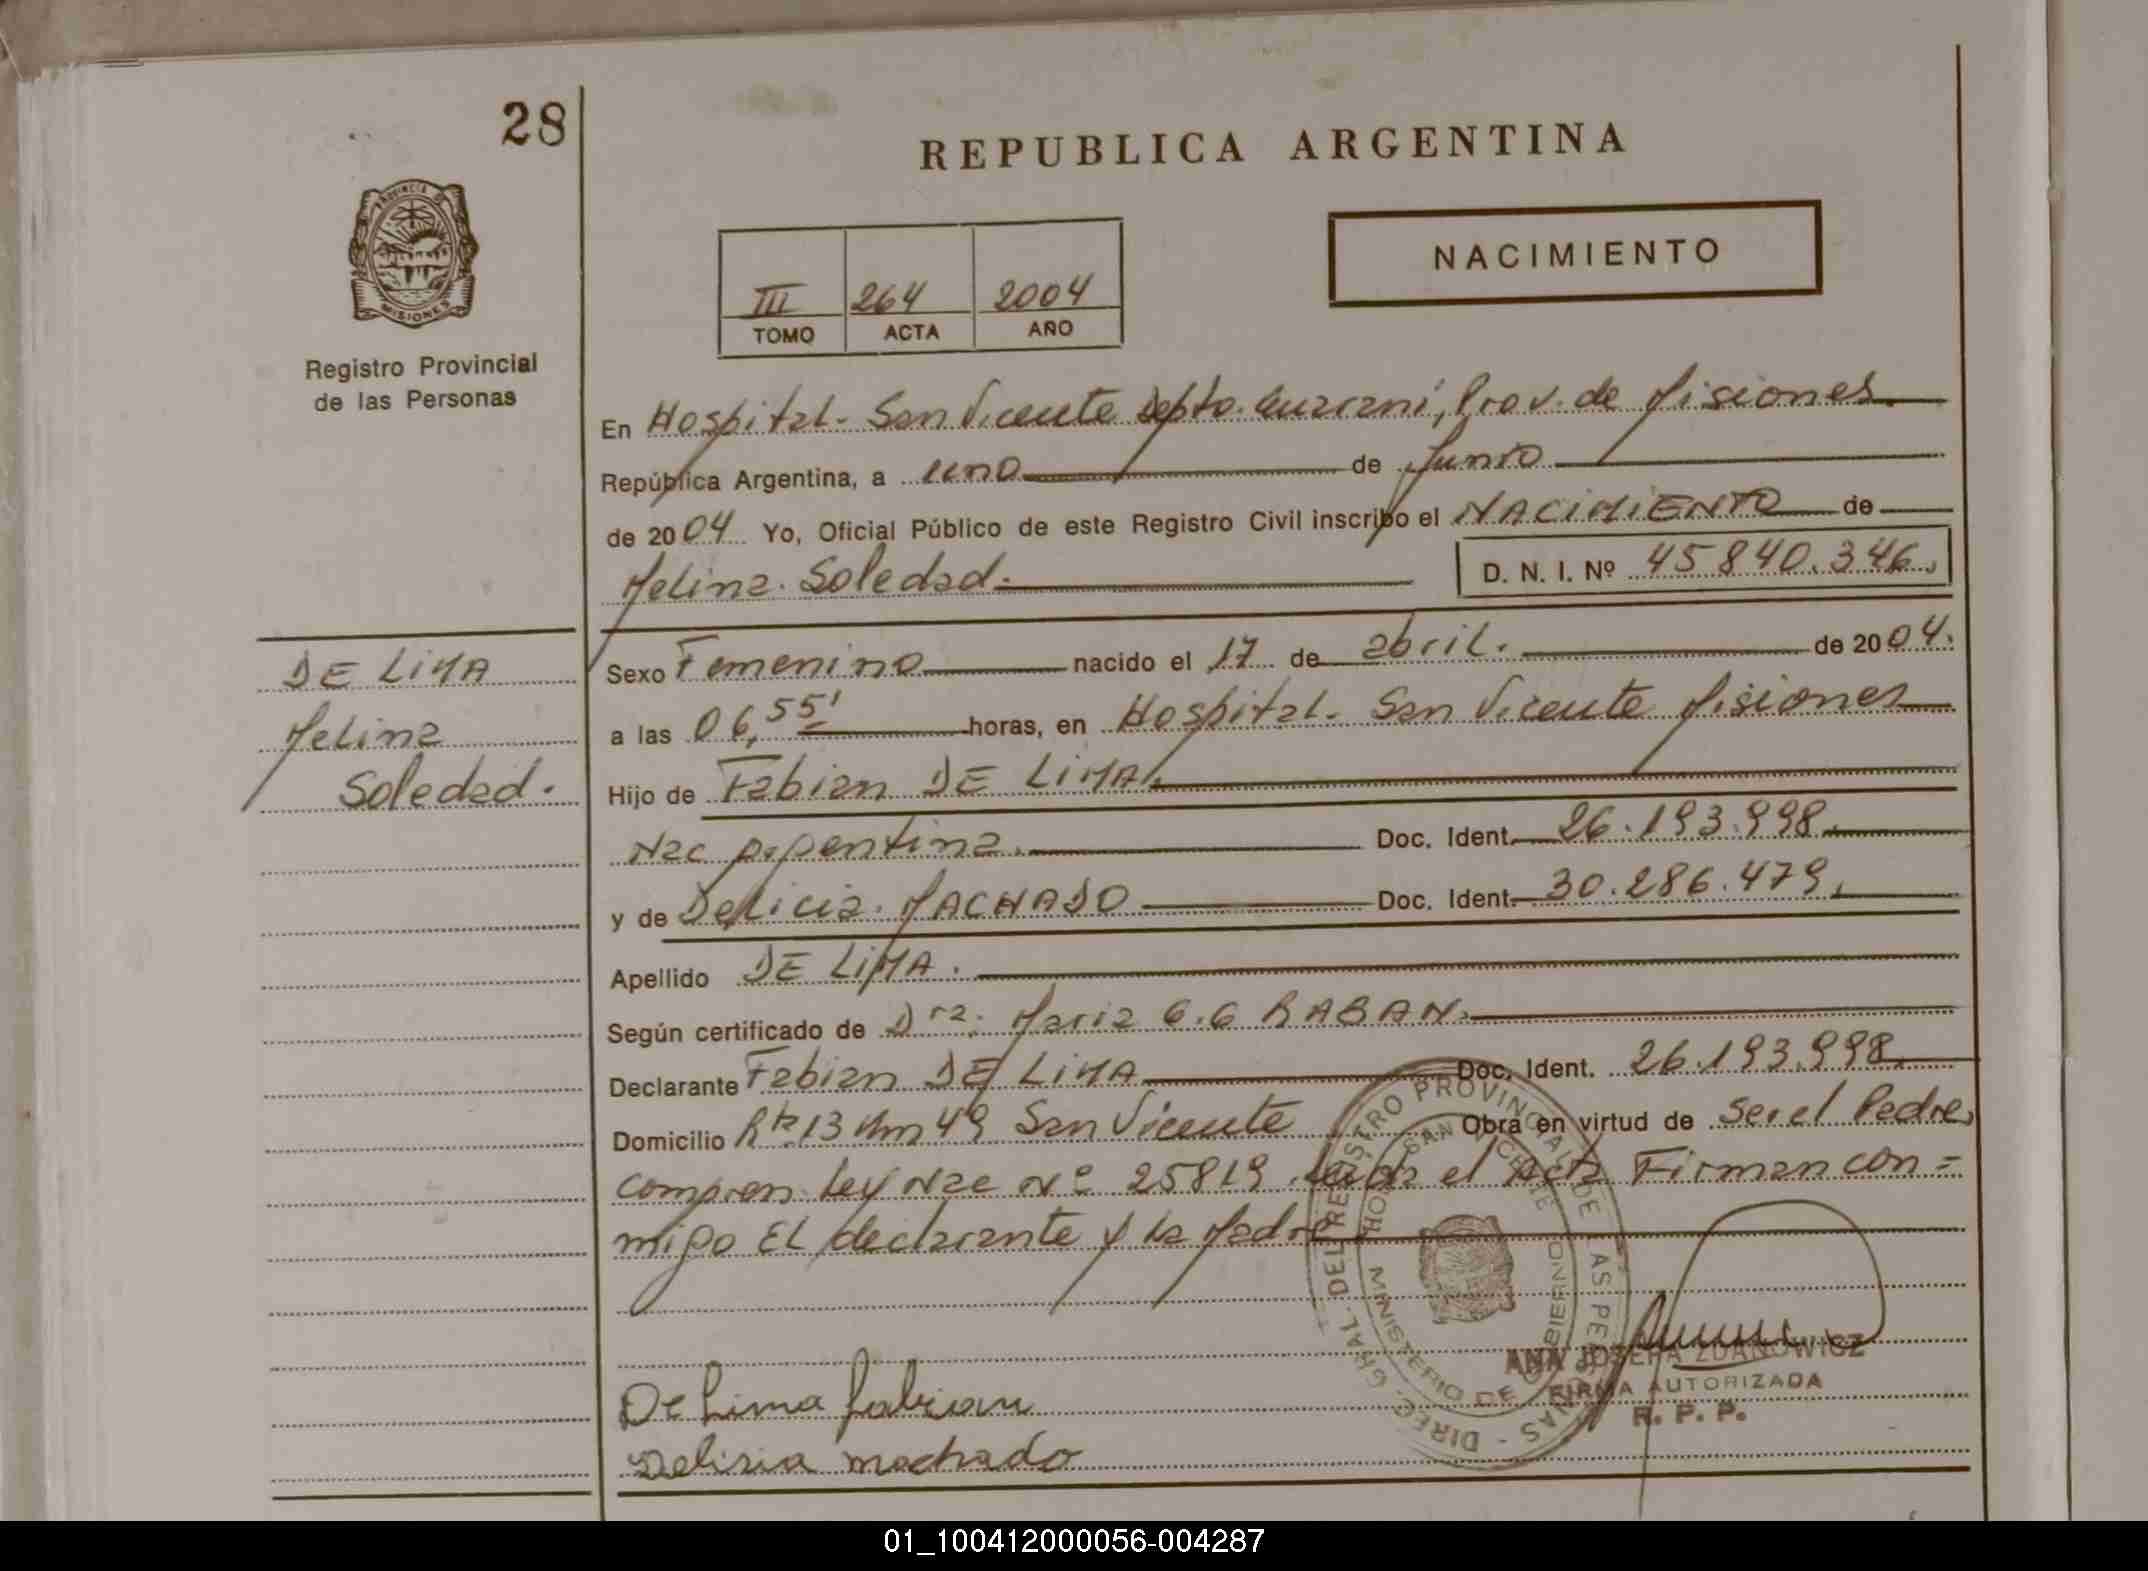 28
REPUBLICA ARGENTINA
NACIMIENTO
PROVINCIA DE
MISIONES
Registro Provincial
de las Personas
III 264 2004
TOMO ACTA AÑO
En Hospital. San Vicente Depto. Guarani, Prov. de Misiones.
República Argentina, a uno de Junio
de 2004 Yo, Oficial Público de este Registro Civil inscribo el NACIMIENTO de
Melina. Soledad. D. N. I. Nº 45840.346.
DE LIMA
Melina
Soledad.
Sexo Femenino nacido el 17 de abril. de 2004.
a las 06,55' horas, en Hospital. San Vicente Misiones
Hijo de Fabian DE LIMA.
Nac Argentina. Doc. Ident. 26.193.998.
y de Delicia. MACHADO Doc. Ident. 30.286.479.
Apellido DE LIMA.
Según certificado de Dra. Maria G.G RABAN.
Declarante Fabian DE LIMA Doc. Ident. 26.193.998.
Domicilio Rta 13 Km 49 San Vicente Obra en virtud de Ser el Padre,
Ley Nac Nº 25819. Leida el Acta Firman con=
migo El declarante y la Madre
DIREC. GRAL. DEL REGISTRO PROVINCIAL DE LAS PERSONAS
HOSP. SAN VICENTE
MINISTERIO DE GOBIERNO
ANA JOSEFA ZDANOWICZ
FIRMA AUTORIZADA
R. P. P.
De Lima fabian
Delisia machado
01_100412000056-004287